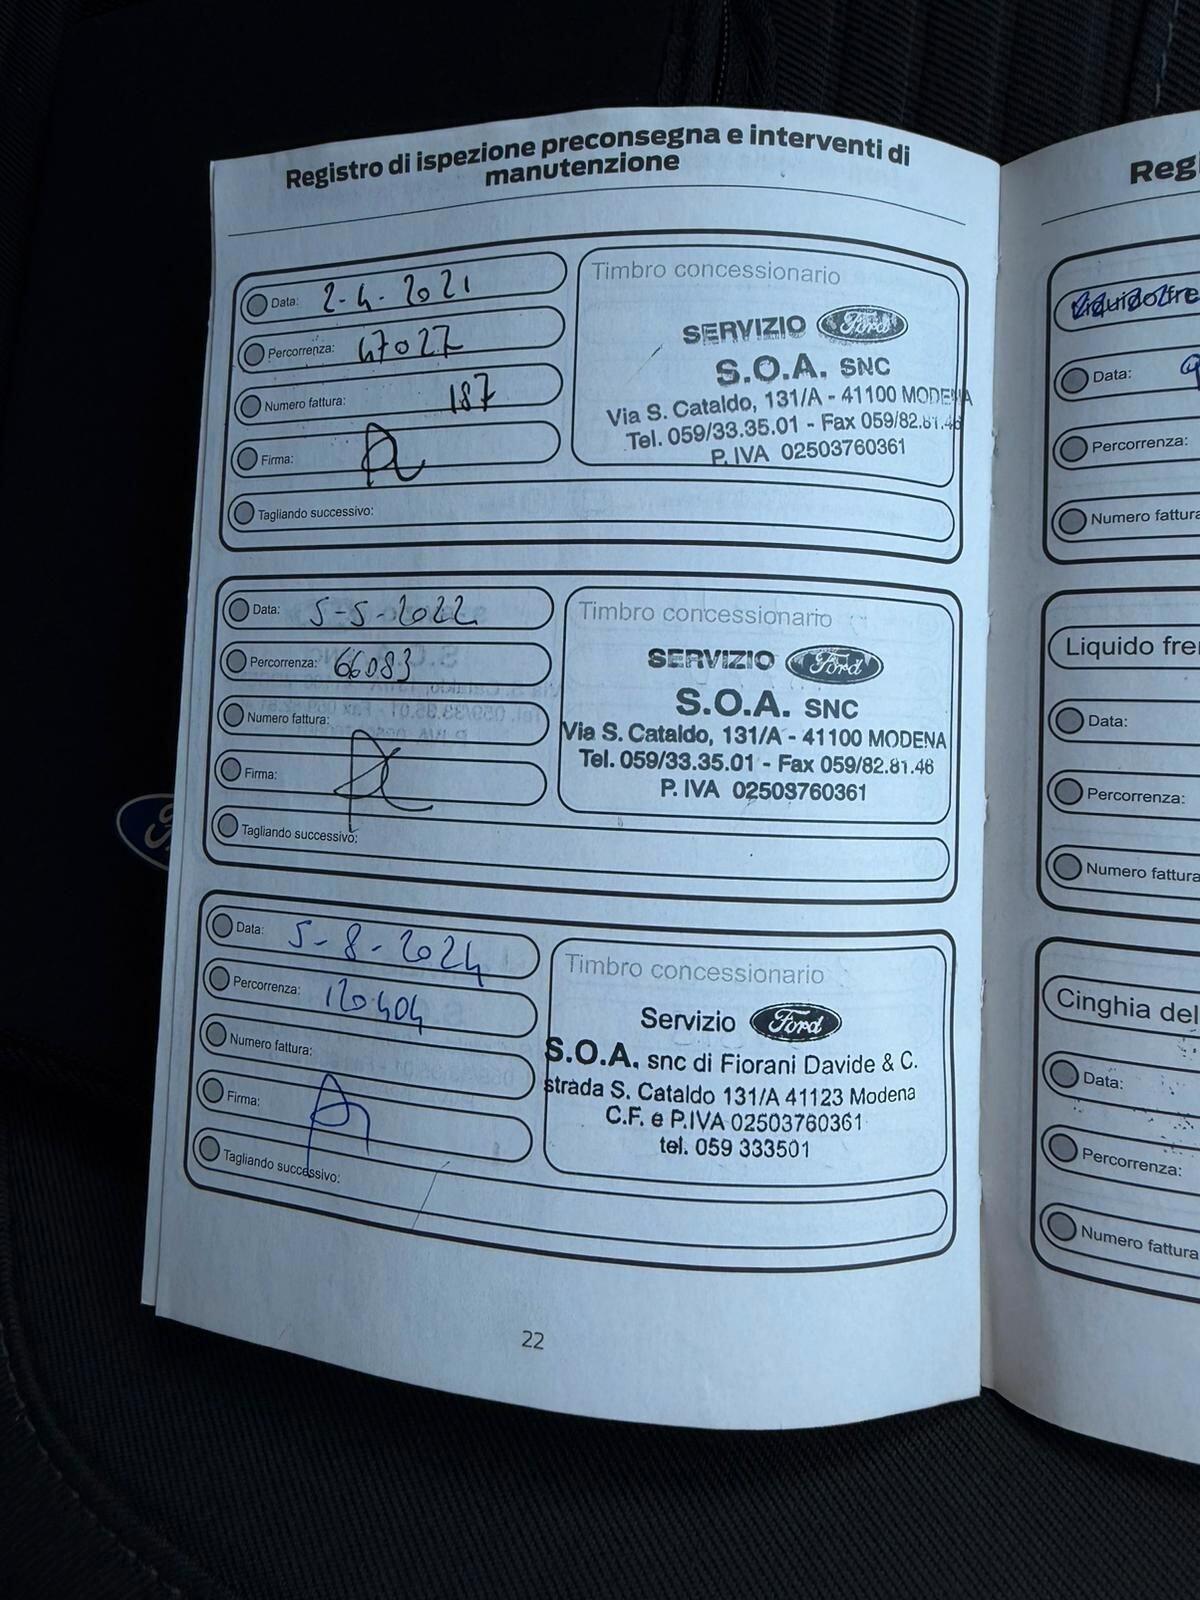 Registro di ispezione preconsegna e interventi di
manutenzione
Data: 2-4-2021
Percorrenza: 47027
Numero fattura: 187
Firma:
Tagliando successivo:
Timbro concessionario
SERVIZIO Ford
S.O.A. SNC
Via S. Cataldo, 131/A - 41100 MODENA
Tel. 059/33.35.01 - Fax 059/82.81.46
P. IVA 02503760361
Data: 5-5-2022
Percorrenza: 66083
Numero fattura:
Firma:
Tagliando successivo:
Timbro concessionario
SERVIZIO Ford
S.O.A. SNC
Via S. Cataldo, 131/A - 41100 MODENA
Tel. 059/33.35.01 - Fax 059/82.81.46
P. IVA 02503760361
Data: 5-8-2024
Percorrenza: 120404
Numero fattura:
Firma:
Tagliando successivo:
Timbro concessionario
Servizio Ford
S.O.A. snc di Fiorani Davide & C.
strada S. Cataldo 131/A 41123 Modena
C.F. e P.IVA 02503760361
tel. 059 333501
22
Regi
Liquido fre
Data:
Percorrenza:
Numero fattura
Liquido fre
Data:
Percorrenza:
Numero fattura
Cinghia del
Data:
Percorrenza:
Numero fattura